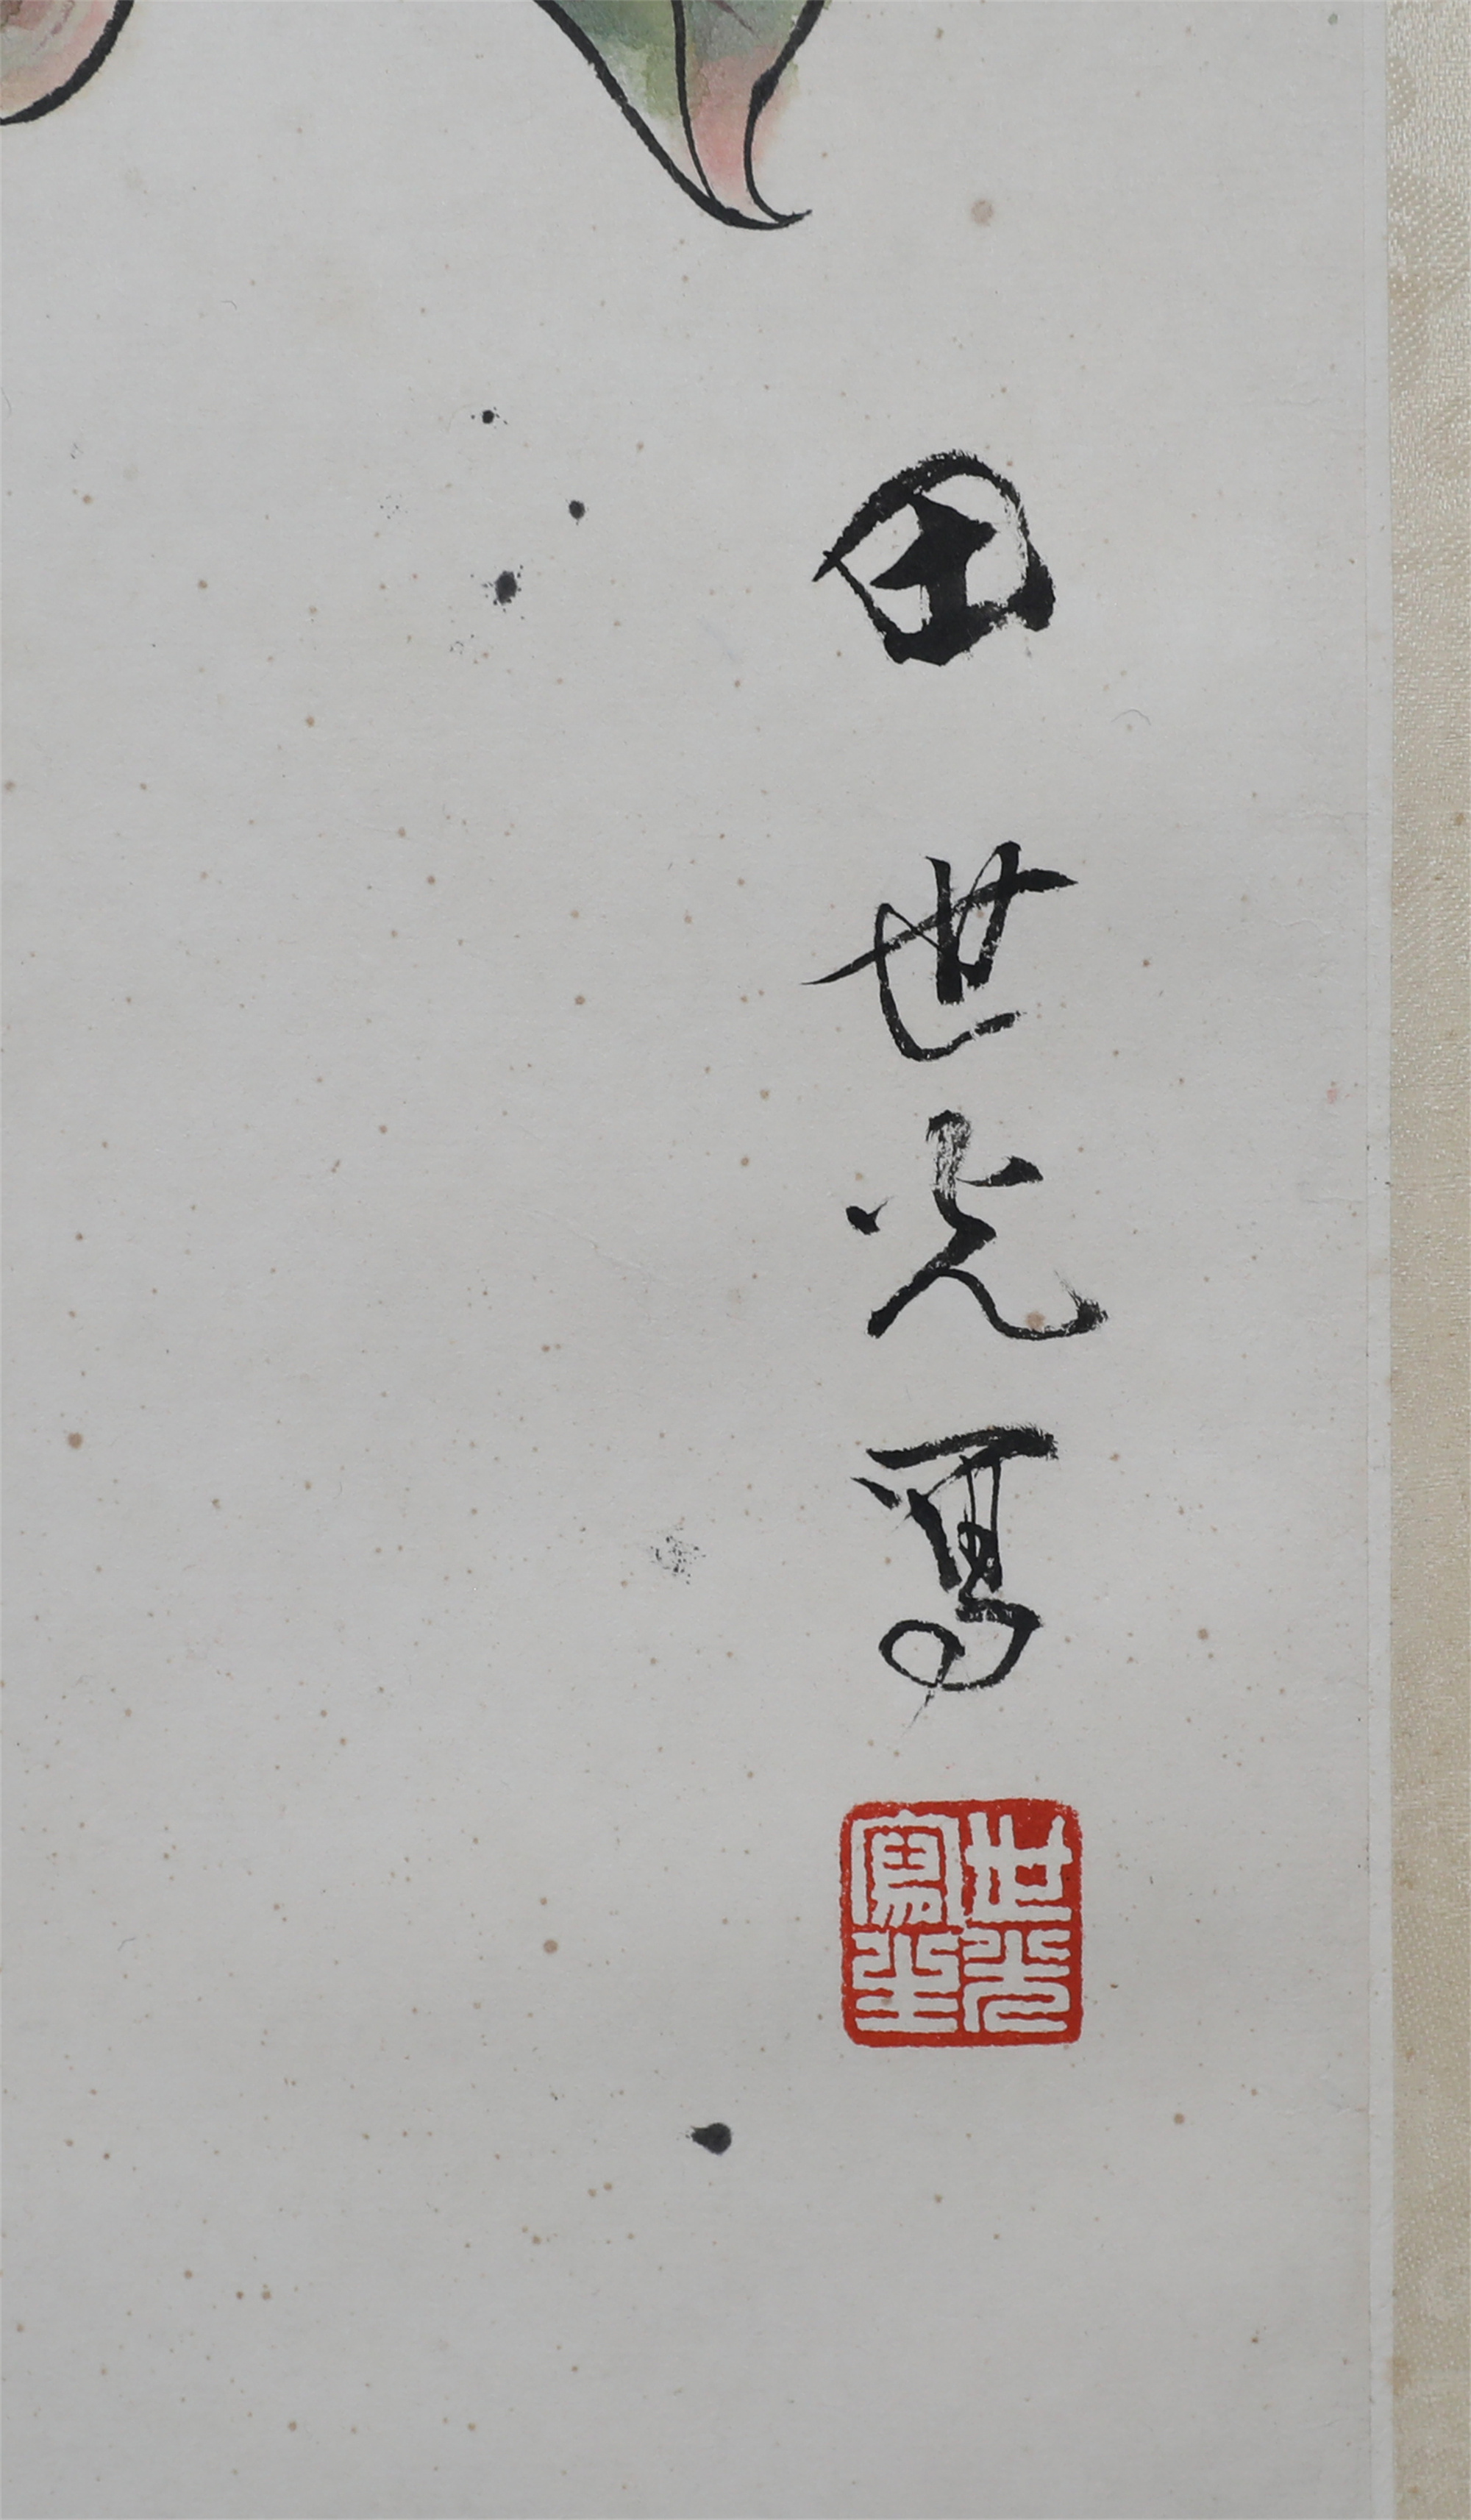 田世光寫
世光
寫生